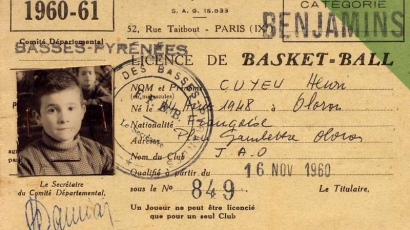 1960-61
S. A. G. 15.033
CATÉGORIE
BENJAMINS
52, Rue Taitbout - PARIS (IX
Comité Départemental
BASSES-PYRÉNÉES
LICENCE DE BASKET-BALL
DES BASSES
NOM et Prénoms CUYEU Henri
Né le 1948 à Oloron
Nationalité Française
Adresse Place Gambetta Oloron
Nom du Club J.A.O
Qualifié à partir du 16 NOV 1960
sous le No 849
Le Titulaire,
Le Secrétaire
du Comité Départemental,
Un Joueur ne peut être licencié
que pour un seul Club